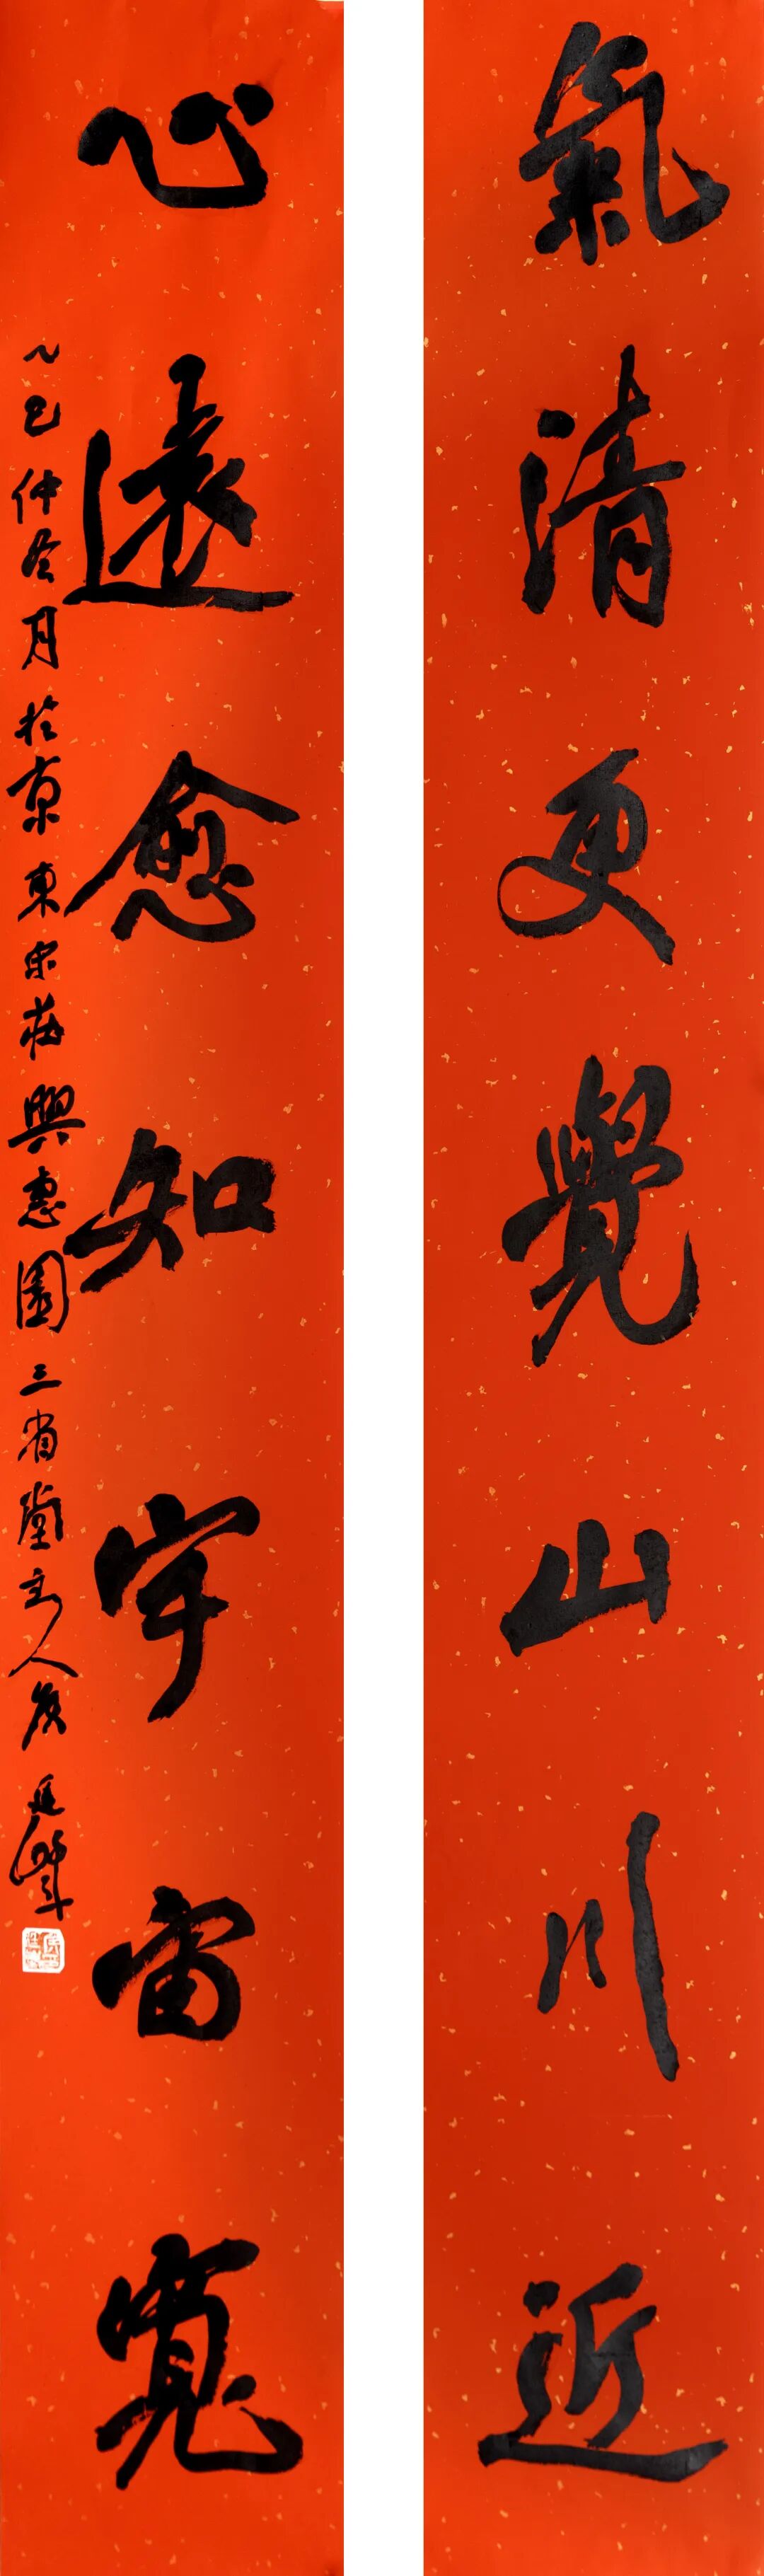 氣清更覺山川近
心遠愈知宇宙寬
乙巳仲冬月於京東宋莊興惠園三省堂主人